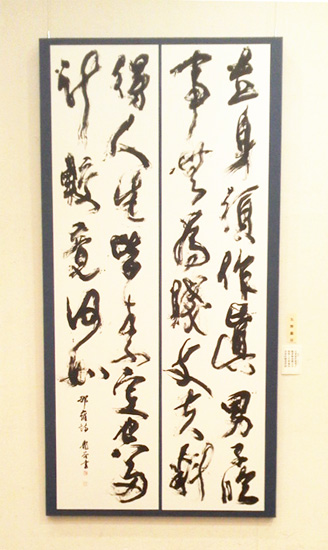 立身須作眞男子臨
事無為賤丈夫料
得人生皆素定空多
計較竟何如
邵雍詩 書